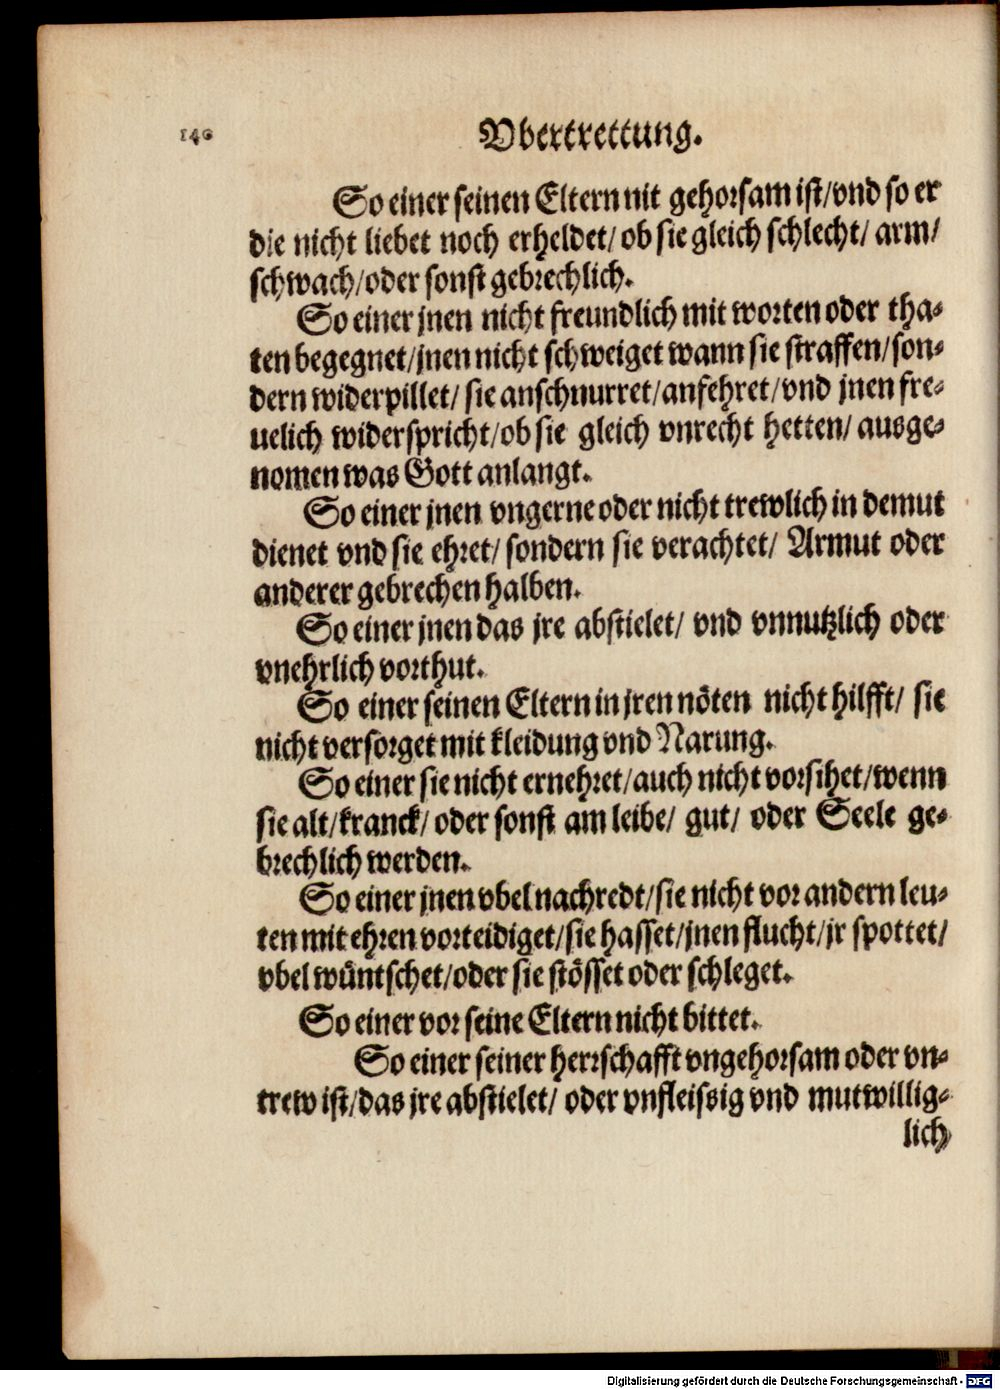 140
Vbertrettung.
So einer seinen Eltern nit gehorsam ist/vnd so er
die nicht liebet noch erheldet/ ob sie gleich schlecht/ arm/
schwach/oder sonst gebrechlich.
So einer jnen nicht freundlich mit worten oder tha-
ten begegnet/jnen nicht schweiget wann sie straffen/son-
dern widerpillet/ sie anschnurret/anfehret/vnd jnen fre-
uelich widerspricht/ob sie gleich vnrecht hetten/ ausge-
nomen was Gott anlangt.
So einer jnen vngerne oder nicht trewlich in demut
dienet vnd sie ehret/ sondern sie verachtet/ Armut oder
anderer gebrechen halben.
So einer jnen das jre abstielet/ vnd vnnutzlich oder
vnehrlich vorthut.
So einer seinen Eltern in jren nöten nicht hilfft/ sie
nicht versorget mit kleidung vnd Narung.
So einer sie nicht ernehret/auch nicht vorsihet/wenn
sie alt/kranck/ oder sonst am leibe/ gut/ oder Seele ge-
brechlich werden.
So einer jnen vbel nachredt/sie nicht vor andern leu-
ten mit ehren vorteidiget/sie hasset/jnen flucht/jr spottet/
vbel wüntschet/oder sie stösset oder schleget.
So einer vor seine Eltern nicht bittet.
So einer seiner herrschafft vngehorsam oder vn-
trew ist/das jre abstielet/ oder vnfleissig vnd mutwillig-
lich
Digitalisierung gefördert durch die Deutsche Forschungsgemeinschaft - DFG